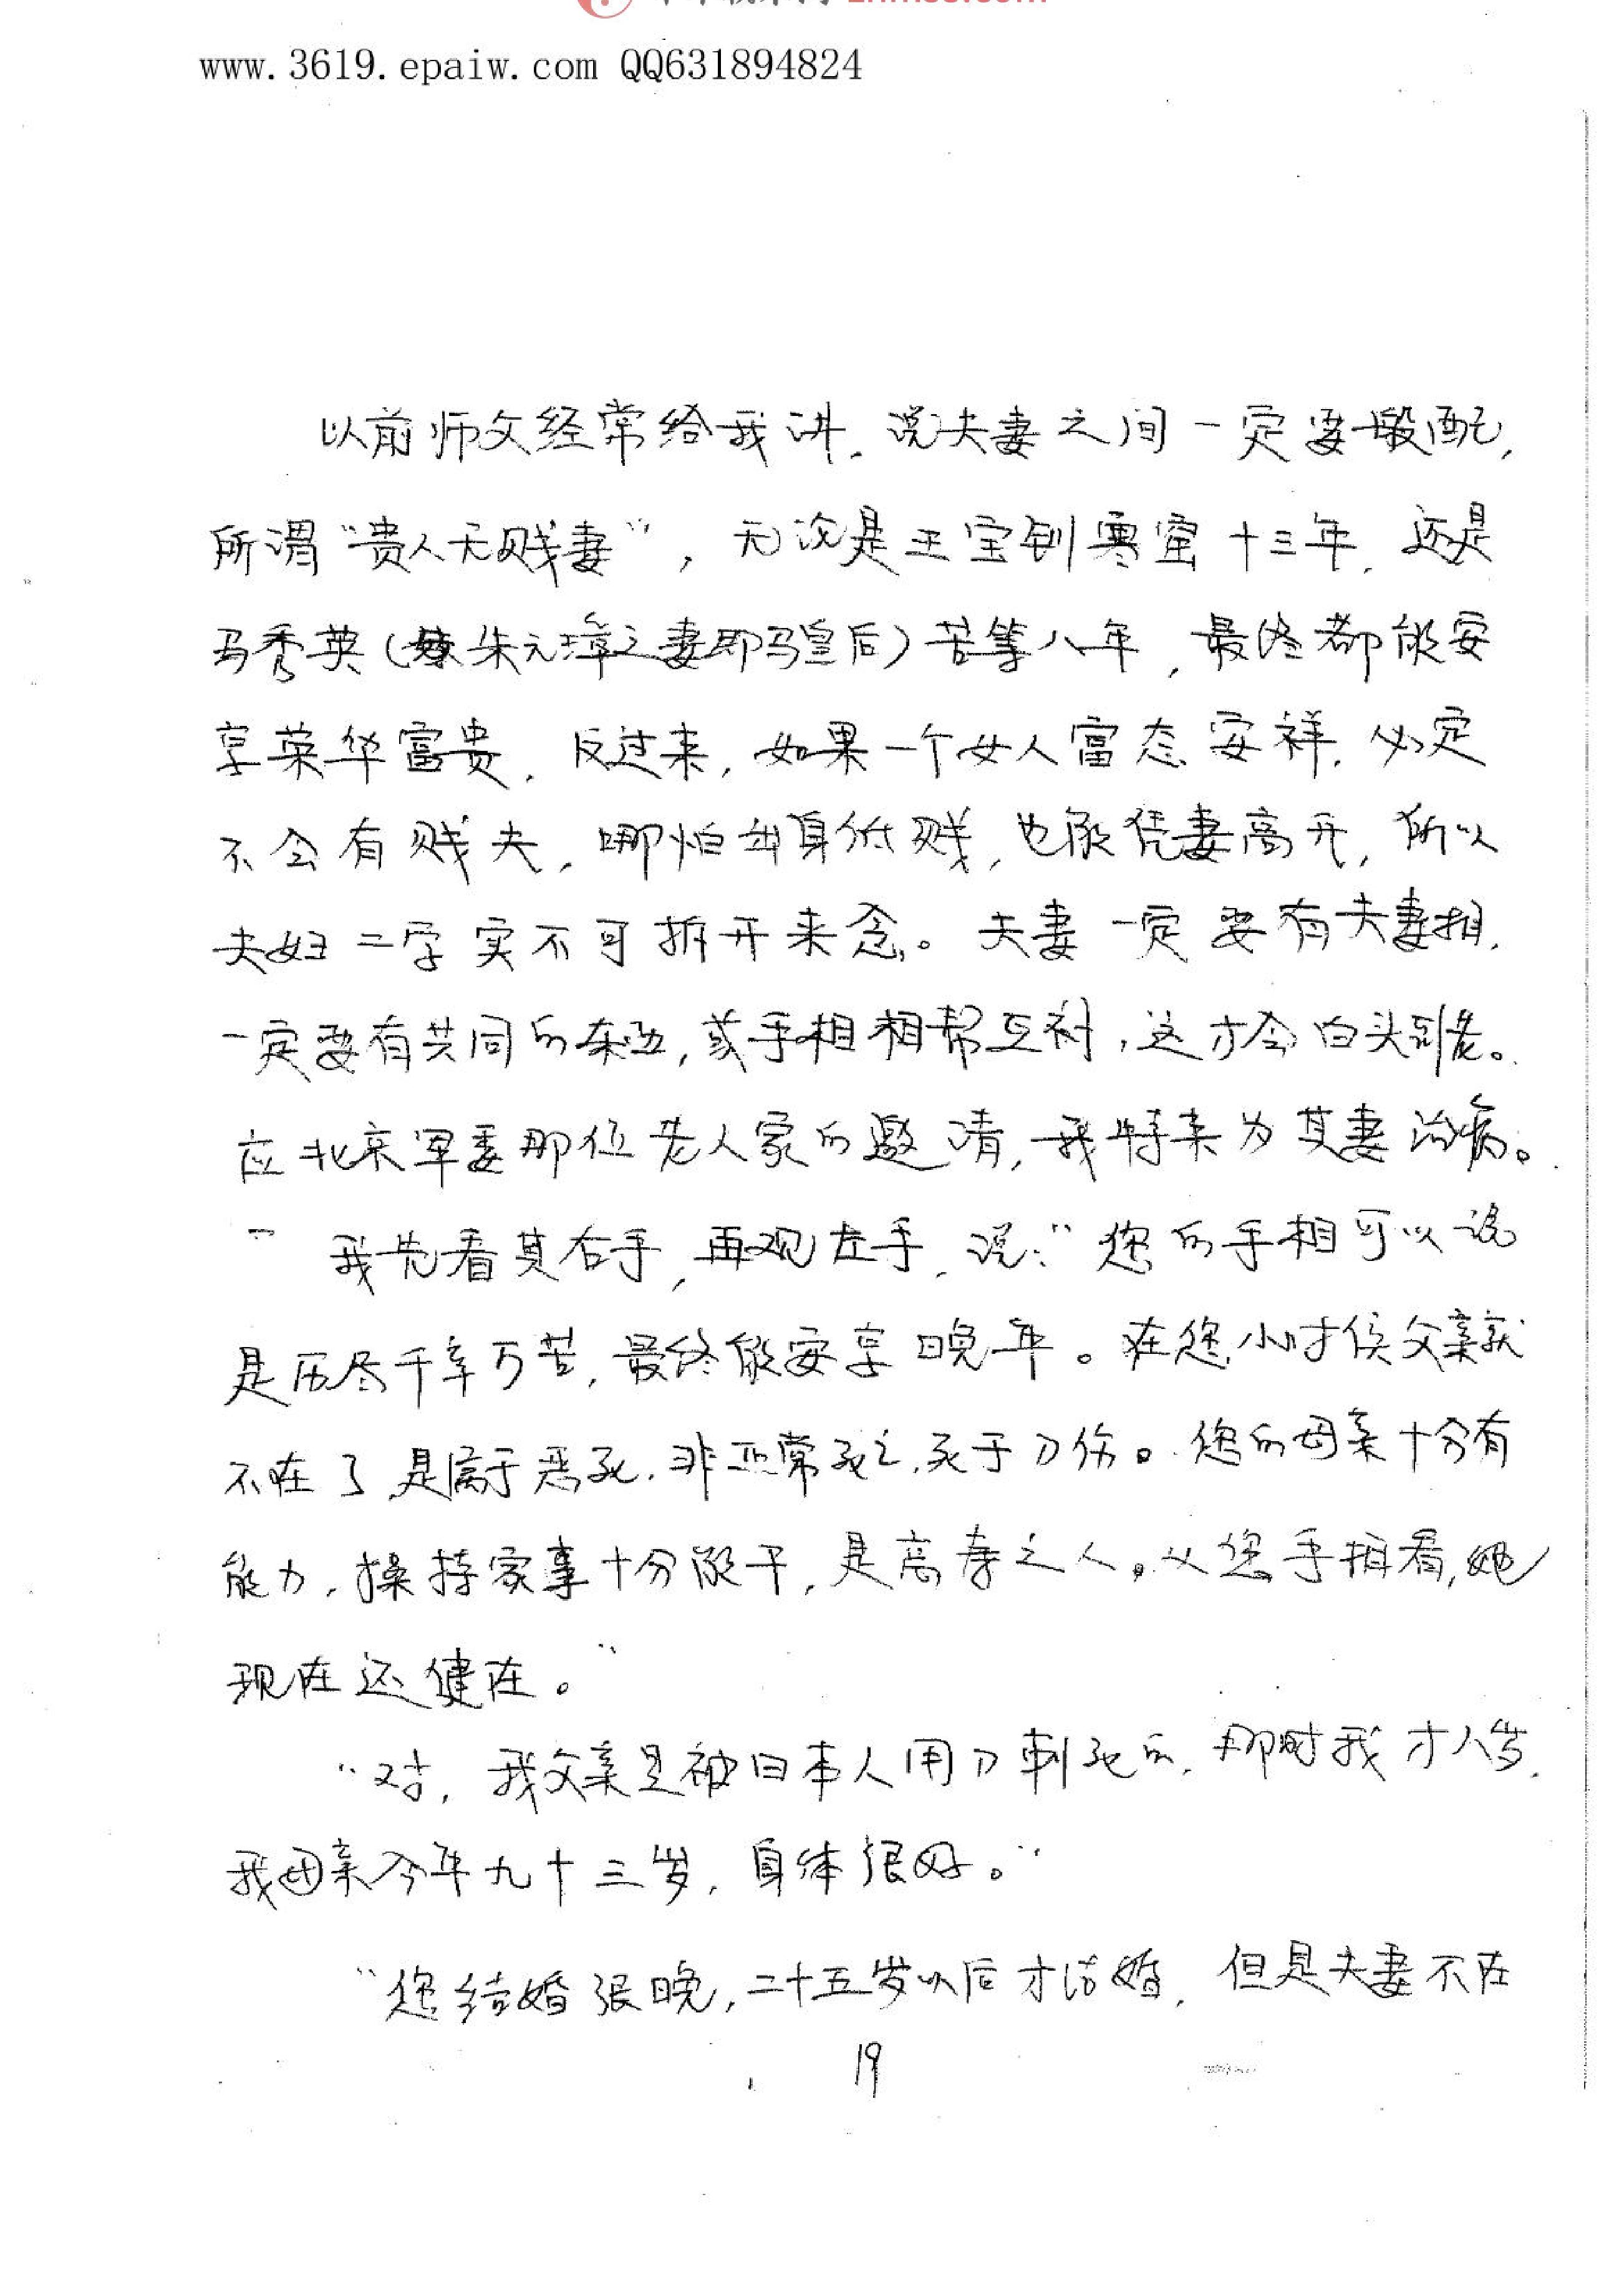 www.3619.epaiw.com QQ631894824
以前师父经常给我讲，说夫妻之间一定要般配，
所谓“贵人无贱妻”，无论是王宝钏寒窑十三年，还是
马秀英（朱元璋之妻即马皇后）苦等八年，最终都能安
享荣华富贵，反过来，如果一个女人富态安祥，必定
不会有贱夫，哪怕出身低贱，也能凭妻高升，所以
夫妇二字实不可拆开来念。夫妻一定要有夫妻相，
一定要有共同的东西，或手相相帮互衬，这才会白头到老。
应北京军委那位老人家的邀请，我特来为其妻治病。
我先看其右手，再观左手，说：“您的手相可以说
是历尽千辛万苦，最终能安享晚年。在您小时侯父亲就
不在了，是属于恶死，非正常死亡，死于刀伤。您的母亲十分有
能力，操持家事十分能干，是高寿之人。从您手相看，她
现在还健在。”
“对，我父亲是被日本人用刀刺死的，那时我才八岁，
我母亲今年九十三岁，身体很好。”
“您结婚很晚，二十五岁以后才结婚，但是夫妻不在
19